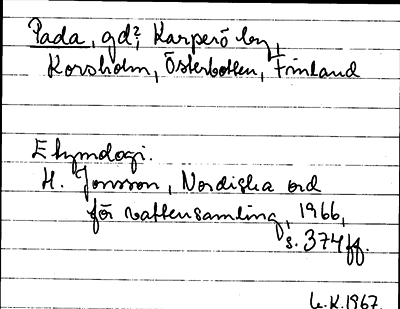 Pada, gd?, Karperö by,
Korsholm, Österbotten, Finland
Etymologi.
H. Jonsson, Nordiska ord
för vattensamling, 1966,
s. 374 ff.
K.1967.